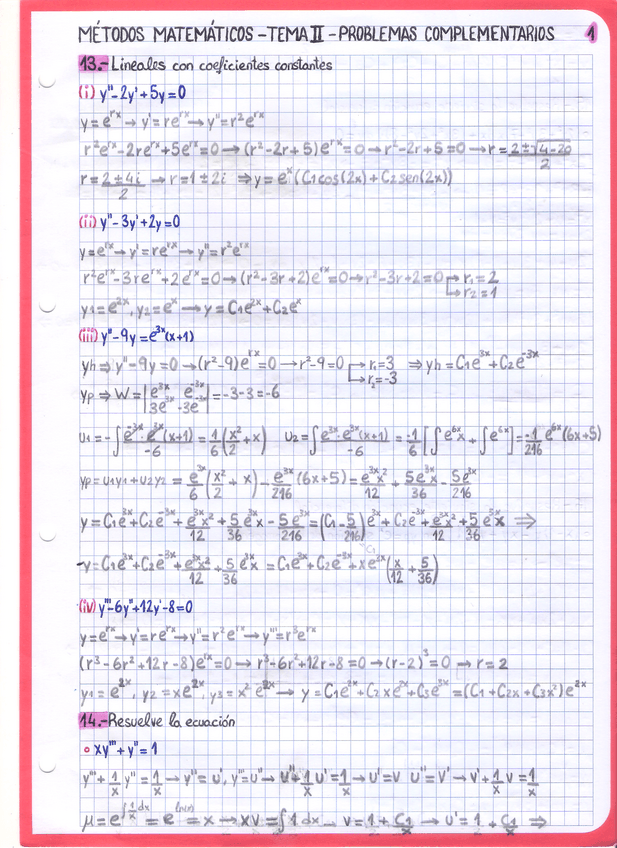 MÉTODOS MATEMÁTICOS - TEMA II - PROBLEMAS COMPLEMENTARIOS 1
13.- Lineales con coeficientes constantes
(i) y''-2y'+5y=0
y=e^{rx} → y'=re^{rx} → y''=r²e^{rx}
r²e^{rx}-2re^{rx}+5e^{rx}=0 → (r²-2r+5)e^{rx}=0 → r²-2r+5=0 → r=\frac{2±\sqrt{4-20}}{2}
r=\frac{2±4i}{2} → r=1±2i ⇒ y=e^{x}(C1cos(2x)+C2sen(2x))
(ii) y''-3y'+2y=0
y=e^{rx} → y'=re^{rx} → y''=r²e^{rx}
r²e^{rx}-3re^{rx}+2e^{rx}=0 → (r²-3r+2)e^{rx}=0 → r²-3r+2=0 → r1=2
→ r2=1
y1=e^{2x}, y2=e^{x} → y=C1e^{2x}+C2e^{x}
(iii) y''-9y=e^{3x}(x+1)
yh ⇒ y''-9y=0 → (r²-9)e^{rx}=0 → r²-9=0 → r1=3 ⇒ yh=C1e^{3x}+C2e^{-3x}
→ r2=-3
yp ⇒ W=\begin{vmatrix} e^{3x} & e^{-3x} \\ 3e^{3x} & -3e^{-3x} \end{vmatrix}=-3-3=-6
u1=-∫\frac{e^{-3x}·e^{3x}(x+1)}{-6}=\frac{1}{6}(\frac{x²}{2}+x) u2=∫\frac{e^{3x}·e^{3x}(x+1)}{-6}=\frac{-1}{6}[∫e^{6x}x+∫e^{6x}]=\frac{-1}{216}e^{6x}(6x+5)
yp=u1y1+u2y2=\frac{e^{3x}}{6}(\frac{x²}{2}+x)-\frac{e^{3x}}{216}(6x+5)=\frac{e^{3x}x²}{12}+\frac{5e^{3x}x}{36}-\frac{5e^{3x}}{216}
y=C1e^{3x}+C2e^{-3x}+\frac{e^{3x}x²}{12}+\frac{5}{36}e^{3x}x-\frac{5e^{3x}}{216}=(C1-\frac{5}{216})e^{3x}+C2e^{-3x}+\frac{e^{3x}x²}{12}+\frac{5}{36}e^{3x}x ⇒
→y=C1e^{3x}+C2e^{-3x}+\frac{e^{3x}x²}{12}+\frac{5}{36}e^{3x}x=C1e^{3x}+C2e^{-3x}+xe^{3x}(\frac{x}{12}+\frac{5}{36})
(iv) y'''-6y''+12y'-8=0
y=e^{rx} → y'=re^{rx} → y''=r²e^{rx} → y'''=r³e^{rx}
(r³-6r²+12r-8)e^{rx}=0 → r³-6r²+12r-8=0 → (r-2)³=0 → r=2
y1=e^{2x}, y2=xe^{2x}, y3=x²e^{2x} → y=C1e^{2x}+C2xe^{2x}+C3e^{3x}=(C1+C2x+C3x²)e^{2x}
14.- Resuelve la ecuación
∘ xy'''+y''=1
y'''+\frac{1}{x}y''=\frac{1}{x} → y''=u', y'''=u'' → u''+\frac{1}{x}u'=\frac{1}{x} → u'=v u''=v' → v'+\frac{1}{x}v=\frac{1}{x}
μ=e^{∫\frac{1}{x}dx}=e^{ln(x)}=x → xv=∫1dx → v=1+\frac{C1}{x} → u'=1+\frac{C1}{x} ⇒